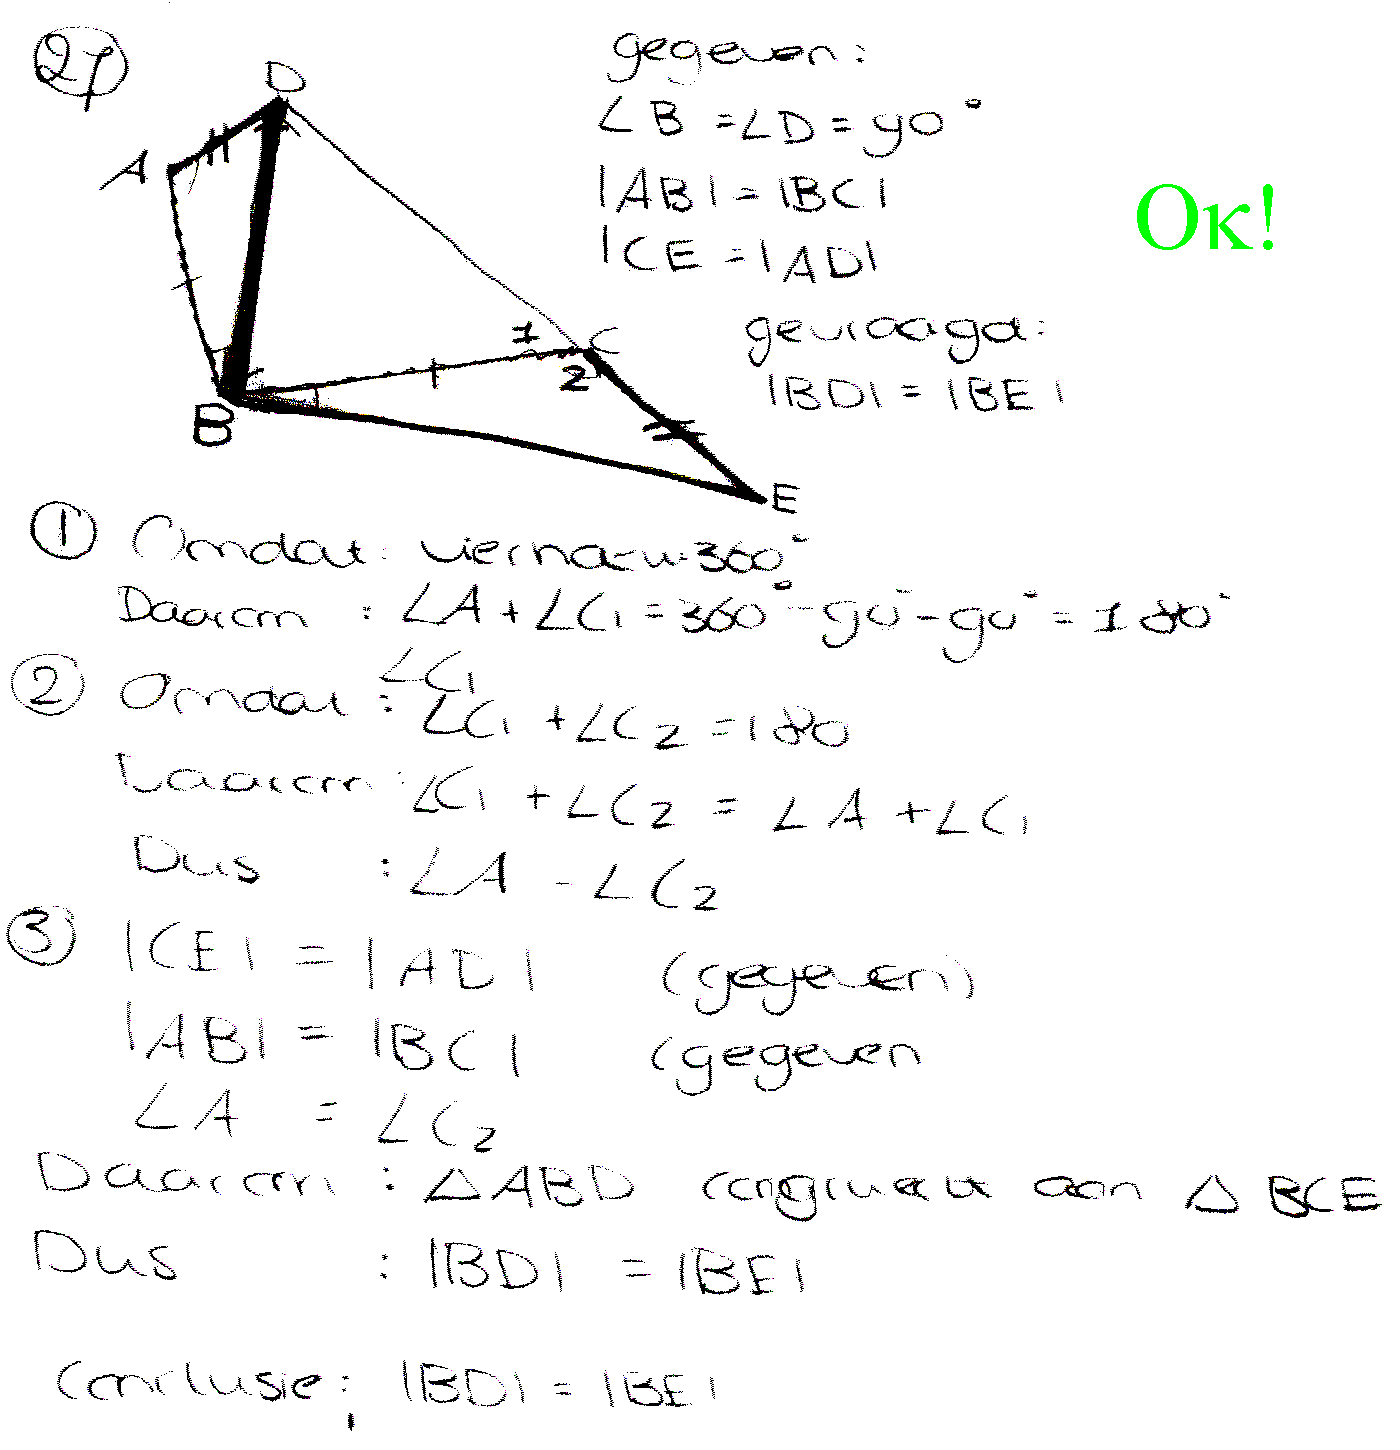 27
D
A
B
1
C
2
E
gegeven:
∠B = ∠D = 90°
|AB| = |BC|
|CE = |AD|
gevraagd:
|BD| = |BE|
Ok!
① Omdat: 360°
Daarom : ∠A + ∠C₁ = 360° - 90° - 90° = 180°
∠C₁
② Omdat : ∠C₁ + ∠C₂ = 180
Daarom : ∠C₁ + ∠C₂ = ∠A + ∠C₁
Dus : ∠A = ∠C₂
③ |CE| = |AD| (gegeven)
|AB| = |BC| (gegeven
∠A = ∠C₂
Daarom : △ABD congruent aan △BCE
Dus : |BD| = |BE|
Conclusie: |BD| = |BE|